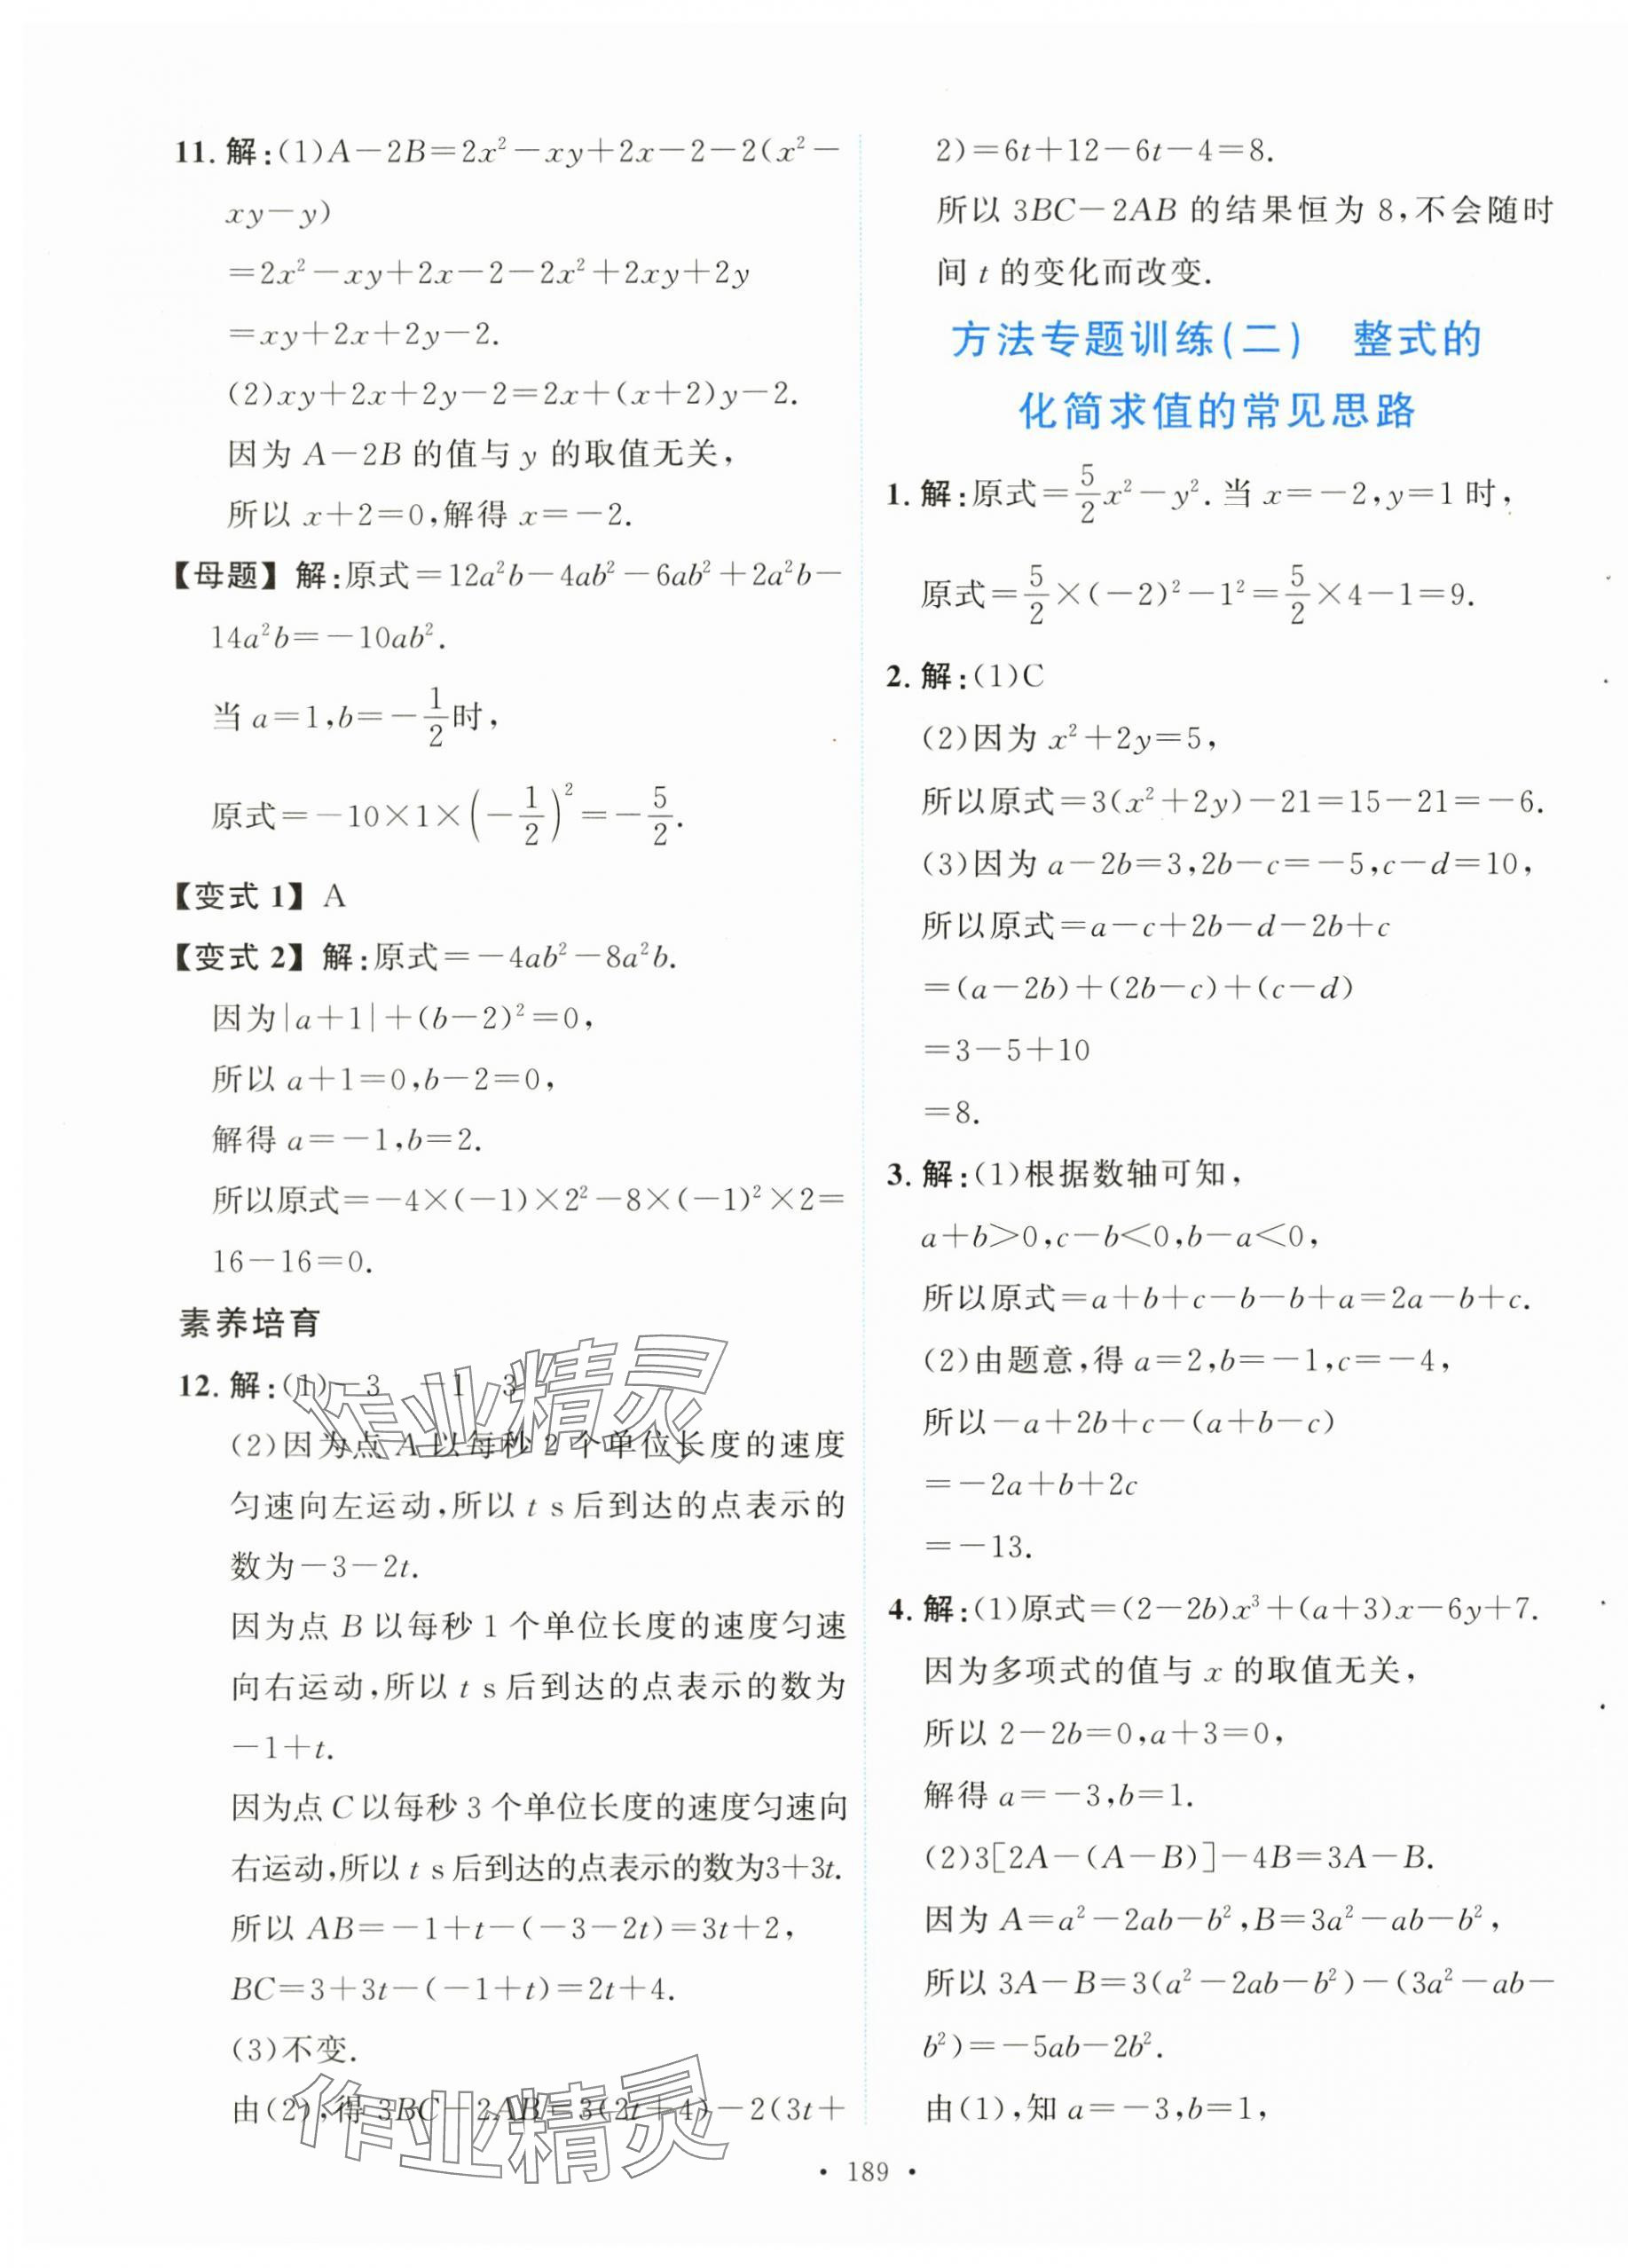 11. 解:(1)A－2B＝2x²－xy＋2x－2－2(x²－
xy－y)
＝2x²－xy＋2x－2－2x²＋2xy＋2y
＝xy＋2x＋2y－2.
(2)xy＋2x＋2y－2＝2x＋(x＋2)y－2.
因为 A－2B 的值与 y 的取值无关,
所以 x＋2＝0,解得 x＝－2.
【母题】 解:原式＝12a²b－4ab²－6ab²＋2a²b－
14a²b＝－10ab².
当 a＝1,b＝－1/2时,
原式＝－10×1×(－1/2)²＝－5/2.
【变式 1】 A
【变式 2】 解:原式＝－4ab²－8a²b.
因为|a＋1|＋(b－2)²＝0,
所以 a＋1＝0,b－2＝0,
解得 a＝－1,b＝2.
所以原式＝－4×(－1)×2²－8×(－1)²×2＝
16－16＝0.
素养培育
12. 解:(1)－3　－1　3
(2)因为点 A 以每秒 2 个单位长度的速度
匀速向左运动,所以 t s后到达的点表示的
数为－3－2t.
因为点 B 以每秒 1 个单位长度的速度匀速
向右运动,所以 t s后到达的点表示的数为
－1＋t.
因为点 C 以每秒 3 个单位长度的速度匀速向
右运动,所以 t s后到达的点表示的数为3＋3t.
所以 AB＝－1＋t－(－3－2t)＝3t＋2,
BC＝3＋3t－(－1＋t)＝2t＋4.
(3)不变.
由(2),得 3BC－2AB＝3(2t＋4)－2(3t＋
2)＝6t＋12－6t－4＝8.
所以 3BC－2AB 的结果恒为 8,不会随时
间 t 的变化而改变.
方法专题训练(二)　整式的
化简求值的常见思路
1. 解:原式＝5/2x²－y². 当 x＝－2,y＝1 时,
原式＝5/2×(－2)²－1²＝5/2×4－1＝9.
2. 解:(1)C
(2)因为 x²＋2y＝5,
所以原式＝3(x²＋2y)－21＝15－21＝－6.
(3)因为 a－2b＝3,2b－c＝－5,c－d＝10,
所以原式＝a－c＋2b－d－2b＋c
＝(a－2b)＋(2b－c)＋(c－d)
＝3－5＋10
＝8.
3. 解:(1)根据数轴可知,
a＋b＞0,c－b＜0,b－a＜0,
所以原式＝a＋b＋c－b－b＋a＝2a－b＋c.
(2)由题意,得 a＝2,b＝－1,c＝－4,
所以－a＋2b＋c－(a＋b－c)
＝－2a＋b＋2c
＝－13.
4. 解:(1)原式＝(2－2b)x³＋(a＋3)x－6y＋7.
因为多项式的值与 x 的取值无关,
所以 2－2b＝0,a＋3＝0,
解得 a＝－3,b＝1.
(2)3[2A－(A－B)]－4B＝3A－B.
因为 A＝a²－2ab－b²,B＝3a²－ab－b²,
所以 3A－B＝3(a²－2ab－b²)－(3a²－ab－
b²)＝－5ab－2b².
由(1),知 a＝－3,b＝1,
• 189 •
作业精灵
作业精灵